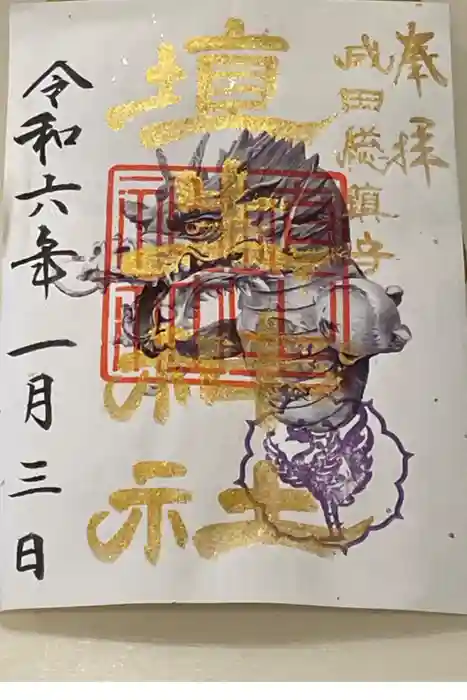 奉拝
成田総鎮守
埴生神社
令和六年一月三日